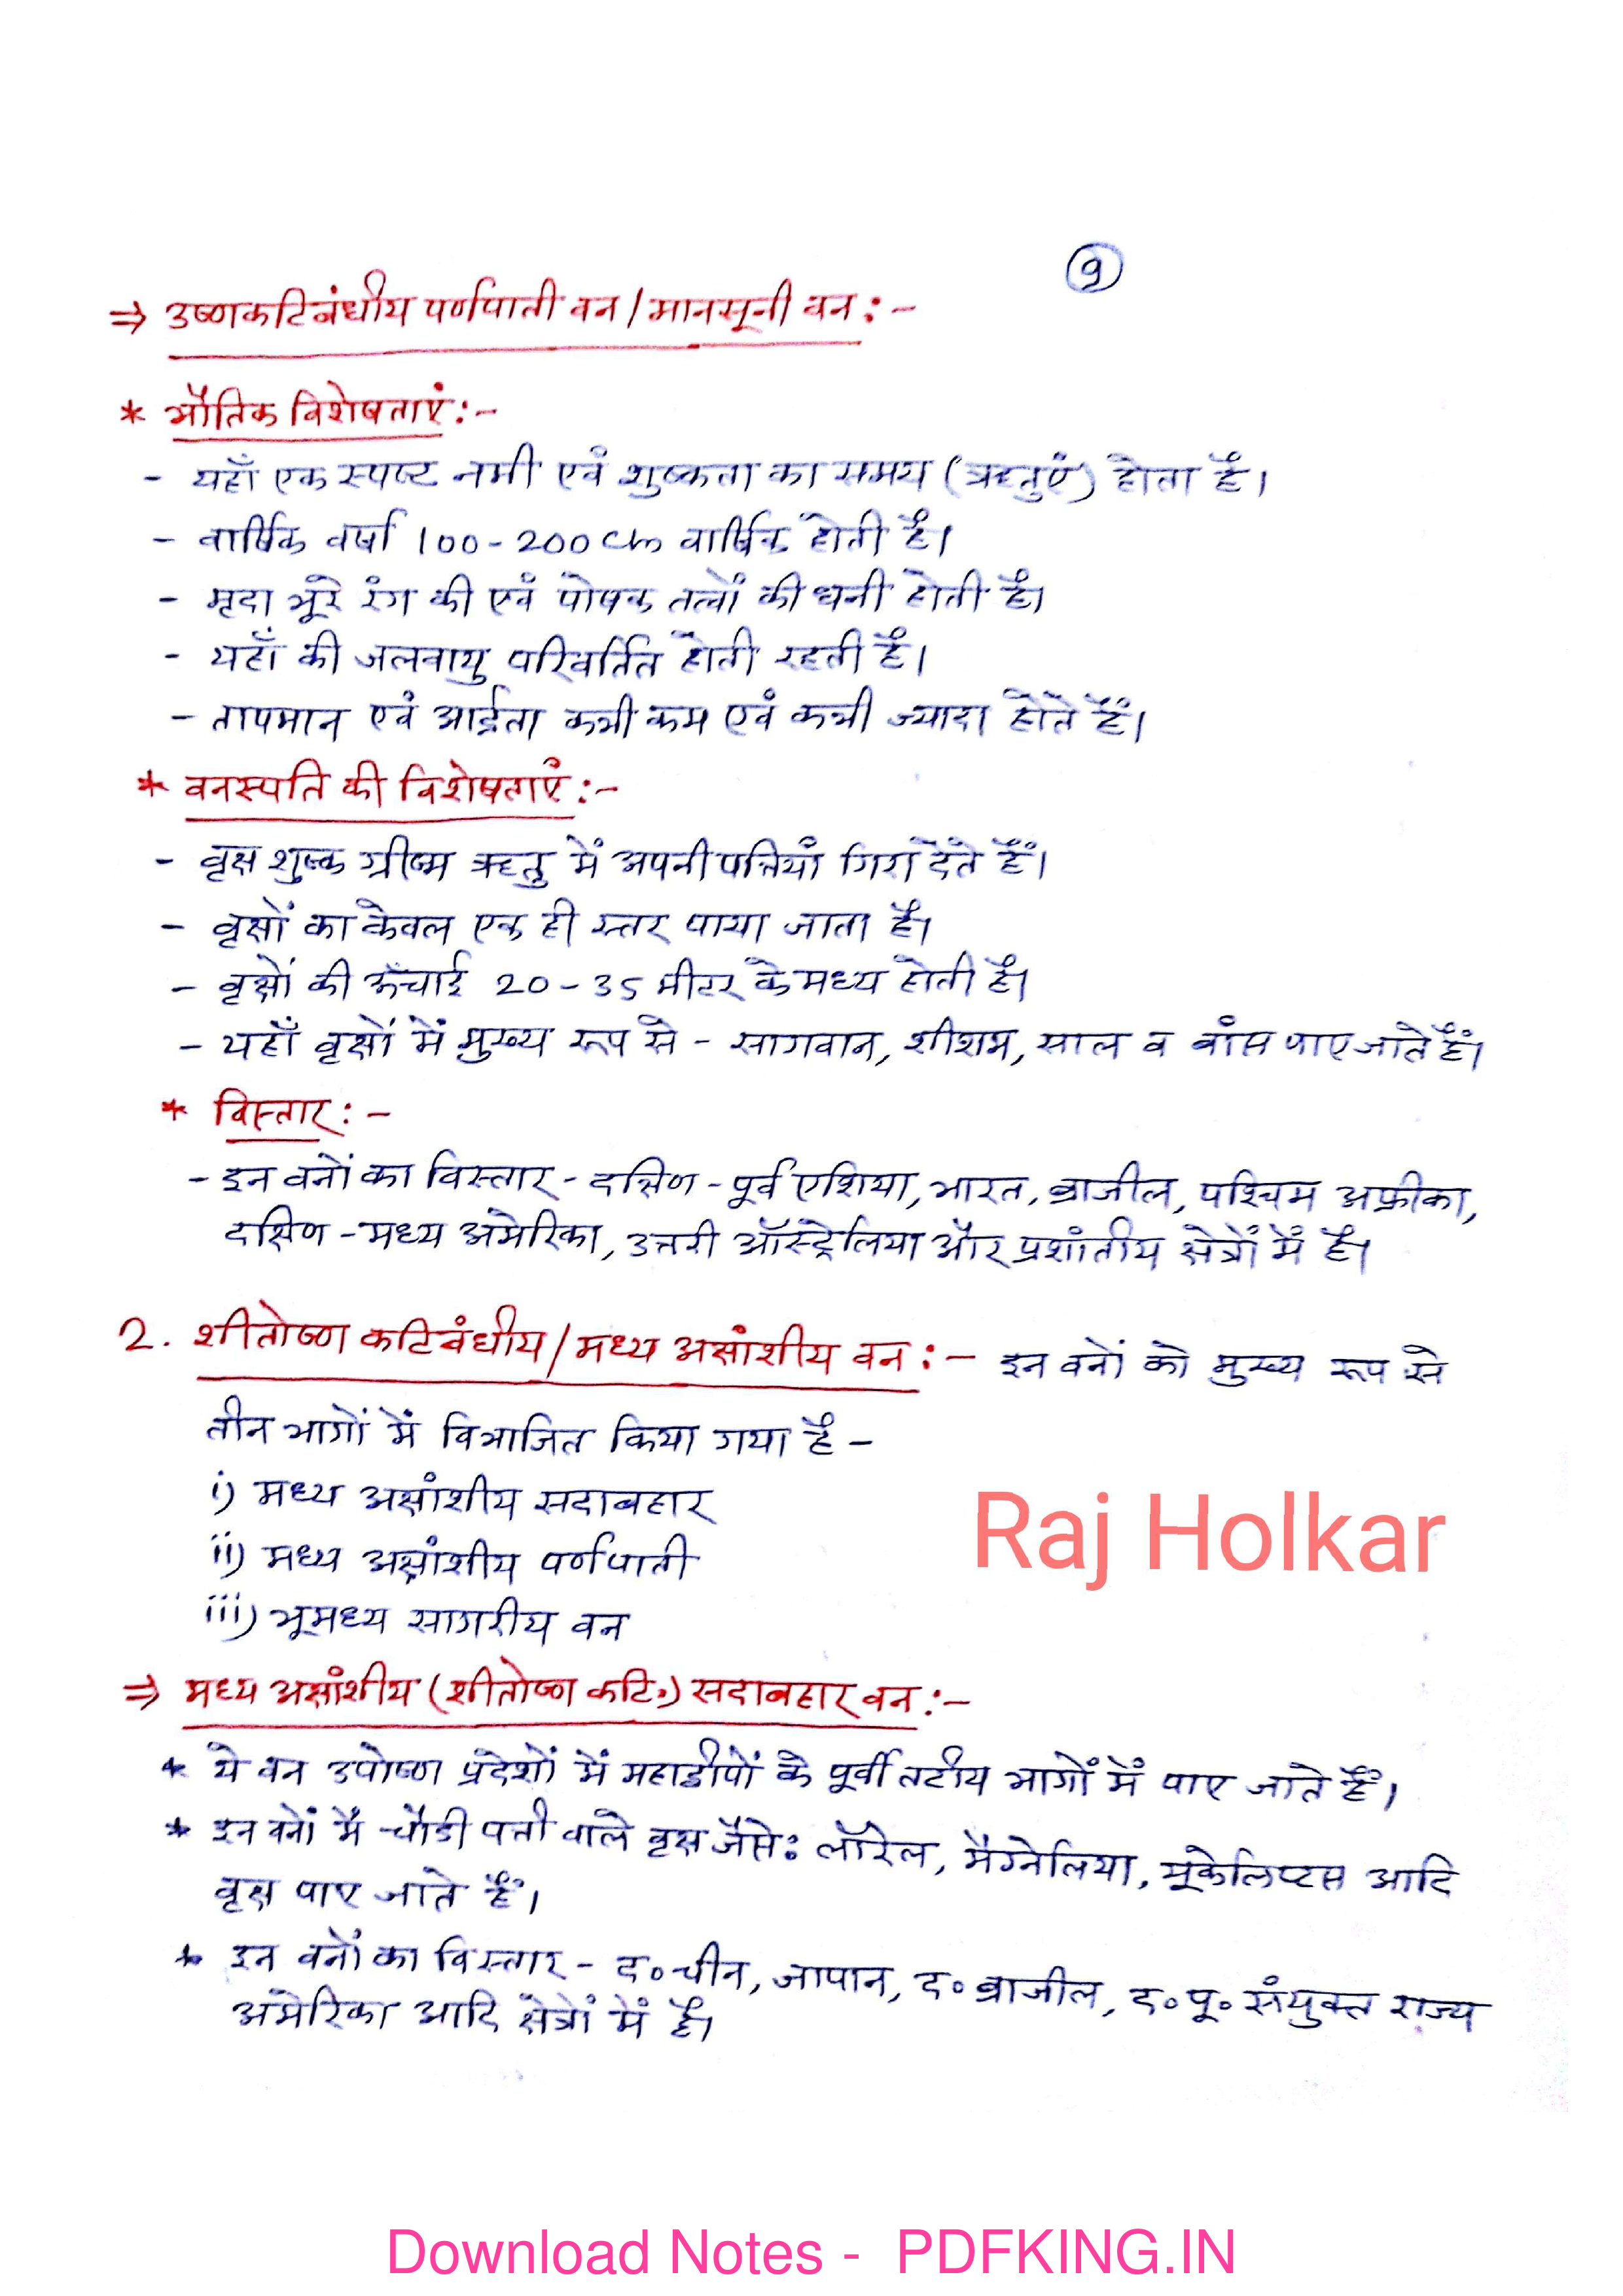 9
⇒ उष्णकटिबंधीय पर्णपाती वन / मानसूनी वन :-
* भौतिक विशेषताएं :-
- यहाँ एक स्पष्ट नमी एवं शुष्कता का समय (ऋतुएं) होता है।
- वार्षिक वर्षा 100-200 cm वार्षिक होती है।
- मृदा भूरे रंग की एवं पोषक तत्वों की धनी होती है।
- यहाँ की जलवायु परिवर्तित होती रहती है।
- तापमान एवं आर्द्रता कभी कम एवं कभी ज्यादा होते हैं।
* वनस्पति की विशेषताएं :-
- वृक्ष शुष्क ग्रीष्म ऋतु में अपनी पत्तियाँ गिरा देते हैं।
- वृक्षों का केवल एक ही स्तर पाया जाता है।
- वृक्षों की ऊँचाई 20-35 मीटर के मध्य होती है।
- यहाँ वृक्षों में मुख्य रूप से - सागवान, शीशम, साल व बांस पाए जाते हैं।
* विस्तार :-
- इन वनों का विस्तार - दक्षिण-पूर्व एशिया, भारत, ब्राजील, पश्चिम अफ्रीका,
दक्षिण-मध्य अमेरिका, उत्तरी ऑस्ट्रेलिया और प्रशांतीय क्षेत्रों में है।
2. शीतोष्ण कटिबंधीय / मध्य अक्षांशीय वन :- इन वनों को मुख्य रूप से
तीन भागों में विभाजित किया गया है -
i) मध्य अक्षांशीय सदाबहार
ii) मध्य अक्षांशीय पर्णपाती
iii) भूमध्य सागरीय वन
Raj Holkar
⇒ मध्य अक्षांशीय (शीतोष्ण कटि॰) सदाबहार वन :-
* ये वन उपोष्ण प्रदेशों में महाद्वीपों के पूर्वी तटीय भागों में पाए जाते हैं।
* इन वनों में चौडी पत्ती वाले वृक्ष जैसे: लॉरेल, मैग्नेलिया, यूकेलिप्टस आदि
वृक्ष पाए जाते हैं।
* इन वनों का विस्तार - द॰ चीन, जापान, द॰ ब्राजील, द॰ पू॰ संयुक्त राज्य
अमेरिका आदि क्षेत्रों में है।
Download Notes - PDFKING.IN